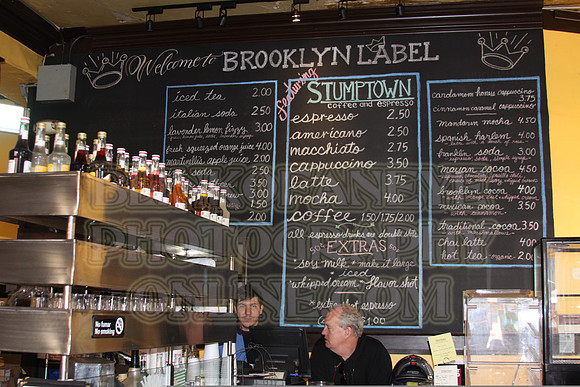 Welcome to BROOKLYN LABEL
iced tea 2.00
italian soda 2.50
lavender lemon fizzy 3.00
fresh squeezed orange juice 4.00
martinelli's apple juice 2.00
soda
featuring
STUMPTOWN
coffee and espresso
espresso 2.50
americano 2.50
macchiato 2.75
cappuccino 3.50
latte 3.75
mocha 4.00
coffee 1.50/1.75/2.00
all espresso drinks are double shots
EXTRAS
soy milk • make it large
• iced
whipped cream • flavor shot
extra shot espresso
1.00
cardamom honey cappuccino
3.75
cinnamon caramel cappuccino
3.75
mandarin mocha 4.50
spanish harlem 4.00
franklin soda 3.00
espresso, soda, simple syrup
mayan cocoa 4.50
brooklyn cocoa 4.00
mexican cocoa 3.50
with cinnamon
traditional cocoa 3.50
chai latte 4.00
hot tea 2.00
No fumar
NO SMOKING
BLACK PLANET
PHOTOGRAPHY
ONLINE.COM